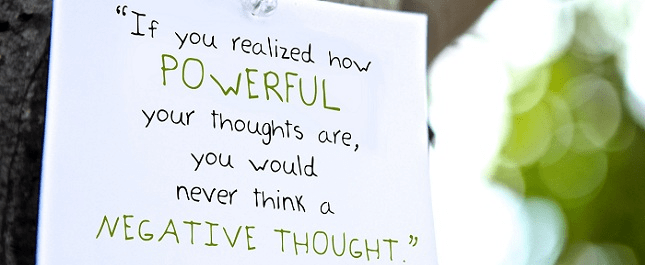 “If you realized how
POWERFUL
your thoughts are,
you would
never think a
NEGATIVE THOUGHT.”